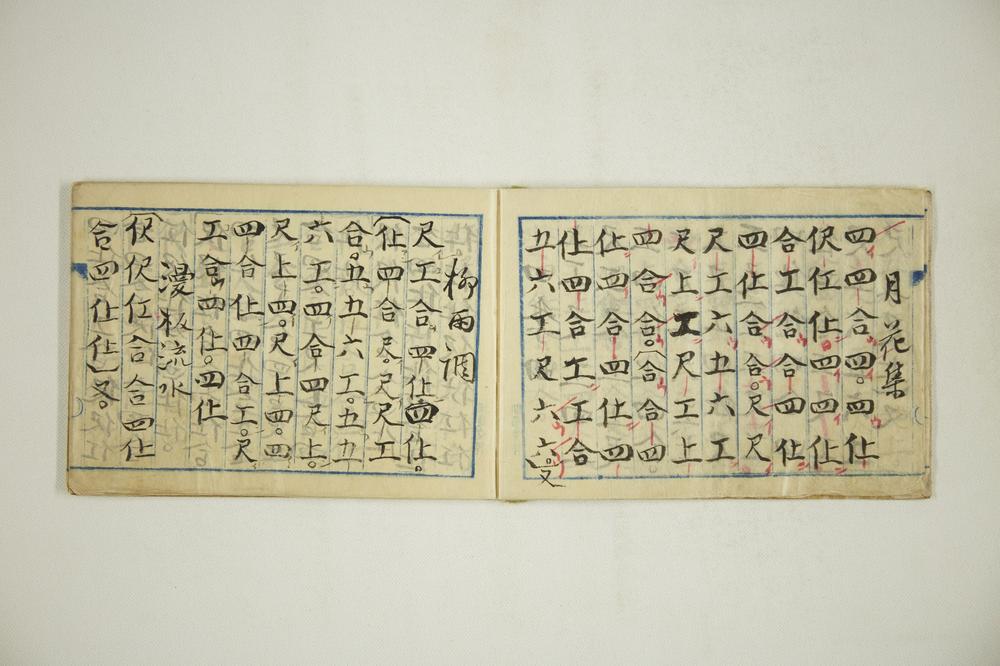 月花集
四四合四。四仩
伬仜仩。四四仩
合工合合四仩
四仩合合。尺尺
尺工六五六工
尺上工尺工上
四合合。(合合四
仩四合四仩四
仩四合工工合
五六工尺六六。
柳雨調
尺工合四仩四仩。
(仩四合尺。尺尺工
合。五五六工。五五
六工。四合四尺上。
尺上四。尺上四。四
四合仩四合工。尺
工合四仩。四仩
漫板流水
(伬伬仜合合四仩
合四仩仩)